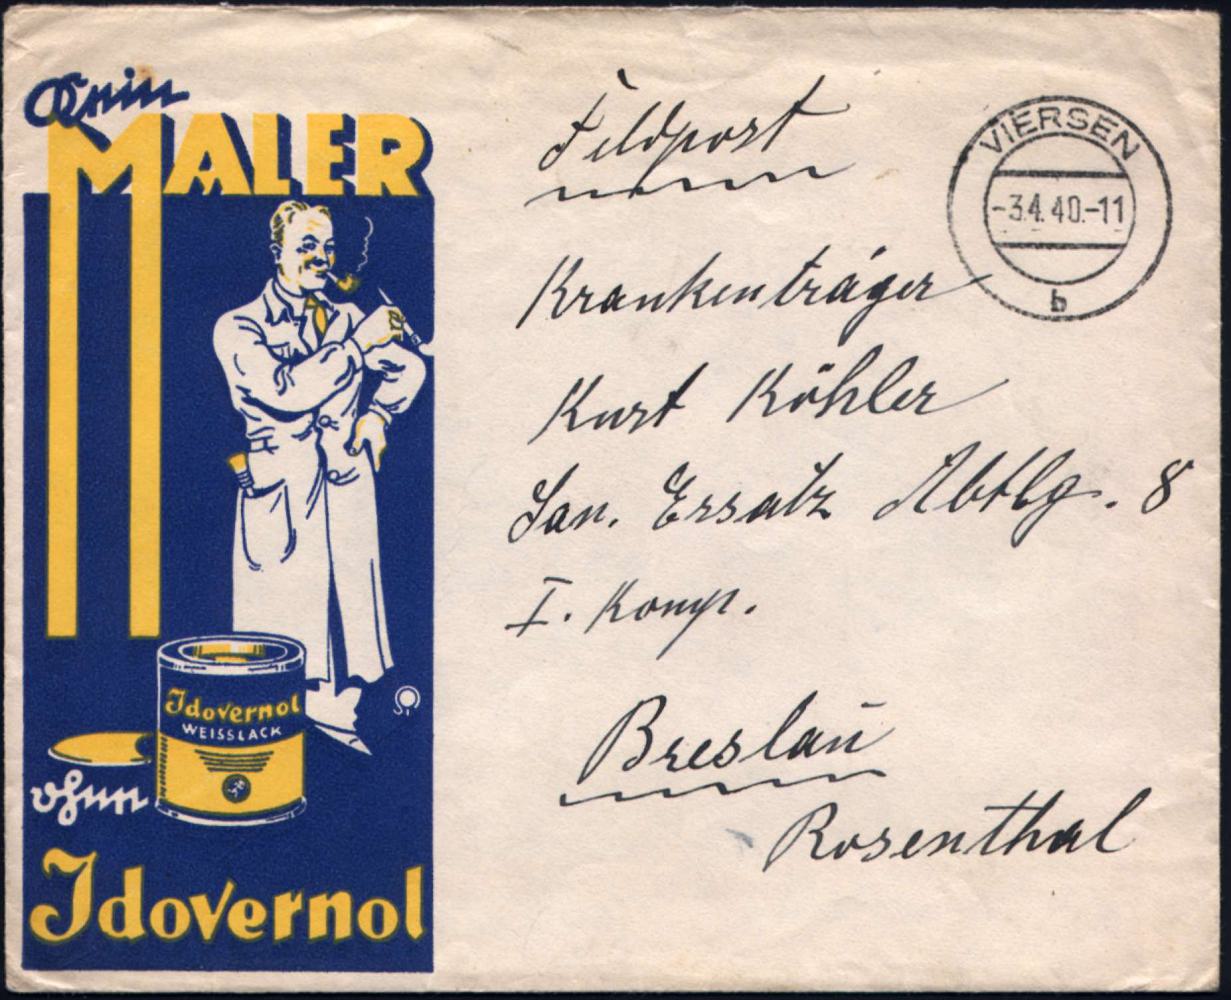 Kein
MALER
Idovernol
WEISSLACK
ohne
Idovernol
Feldpost
VIERSEN
-3.4.40.-11
b
Krankenträger
Kurt Köhler
San. Ersatz Abtlg. 8
I. Komp.
Breslau
Rosenthal